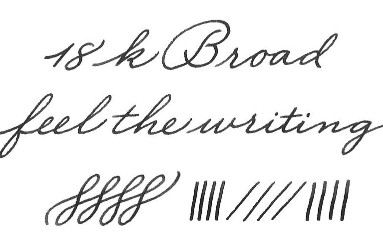 18k Broad
feel the writing